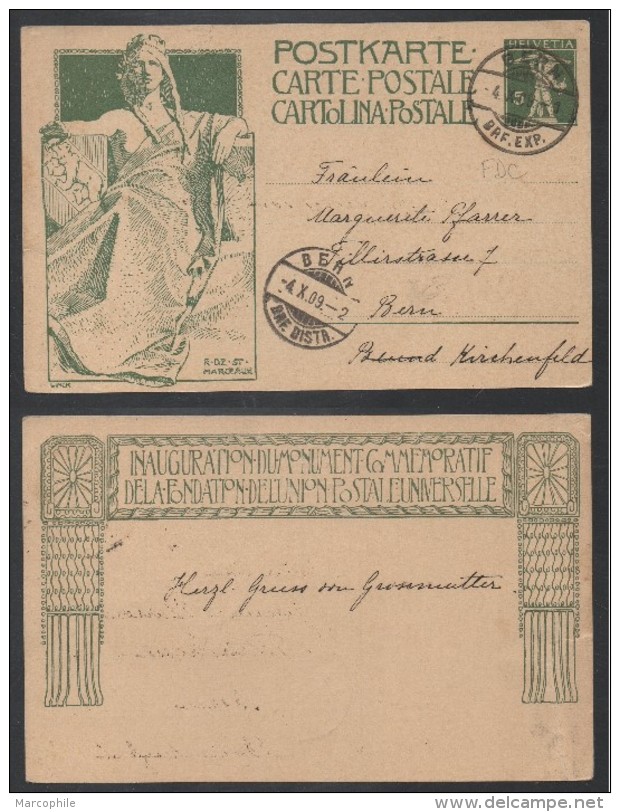 POSTKARTE·
CARTE·POSTALE
CARTOLINA·POSTALE
HELVETIA
5
BERN
-4.
BRF. EXP.
FDC
Fräulein
Marguerite Pfarrer
Tillierstrasse 7
Bern
Kirchenfeld
BERN
-4.X.09.–2
BRF. DISTR.
R·DE·ST·
MARCEAUX
INAUGURATION·DU·MONUMENT·COMMEMORATIF
DE·LA·FONDATION·DE·L'UNION·POSTALE·UNIVERSELLE
Herzl. Gruss von Grossmutter
Marcophile
www.delcampe.net